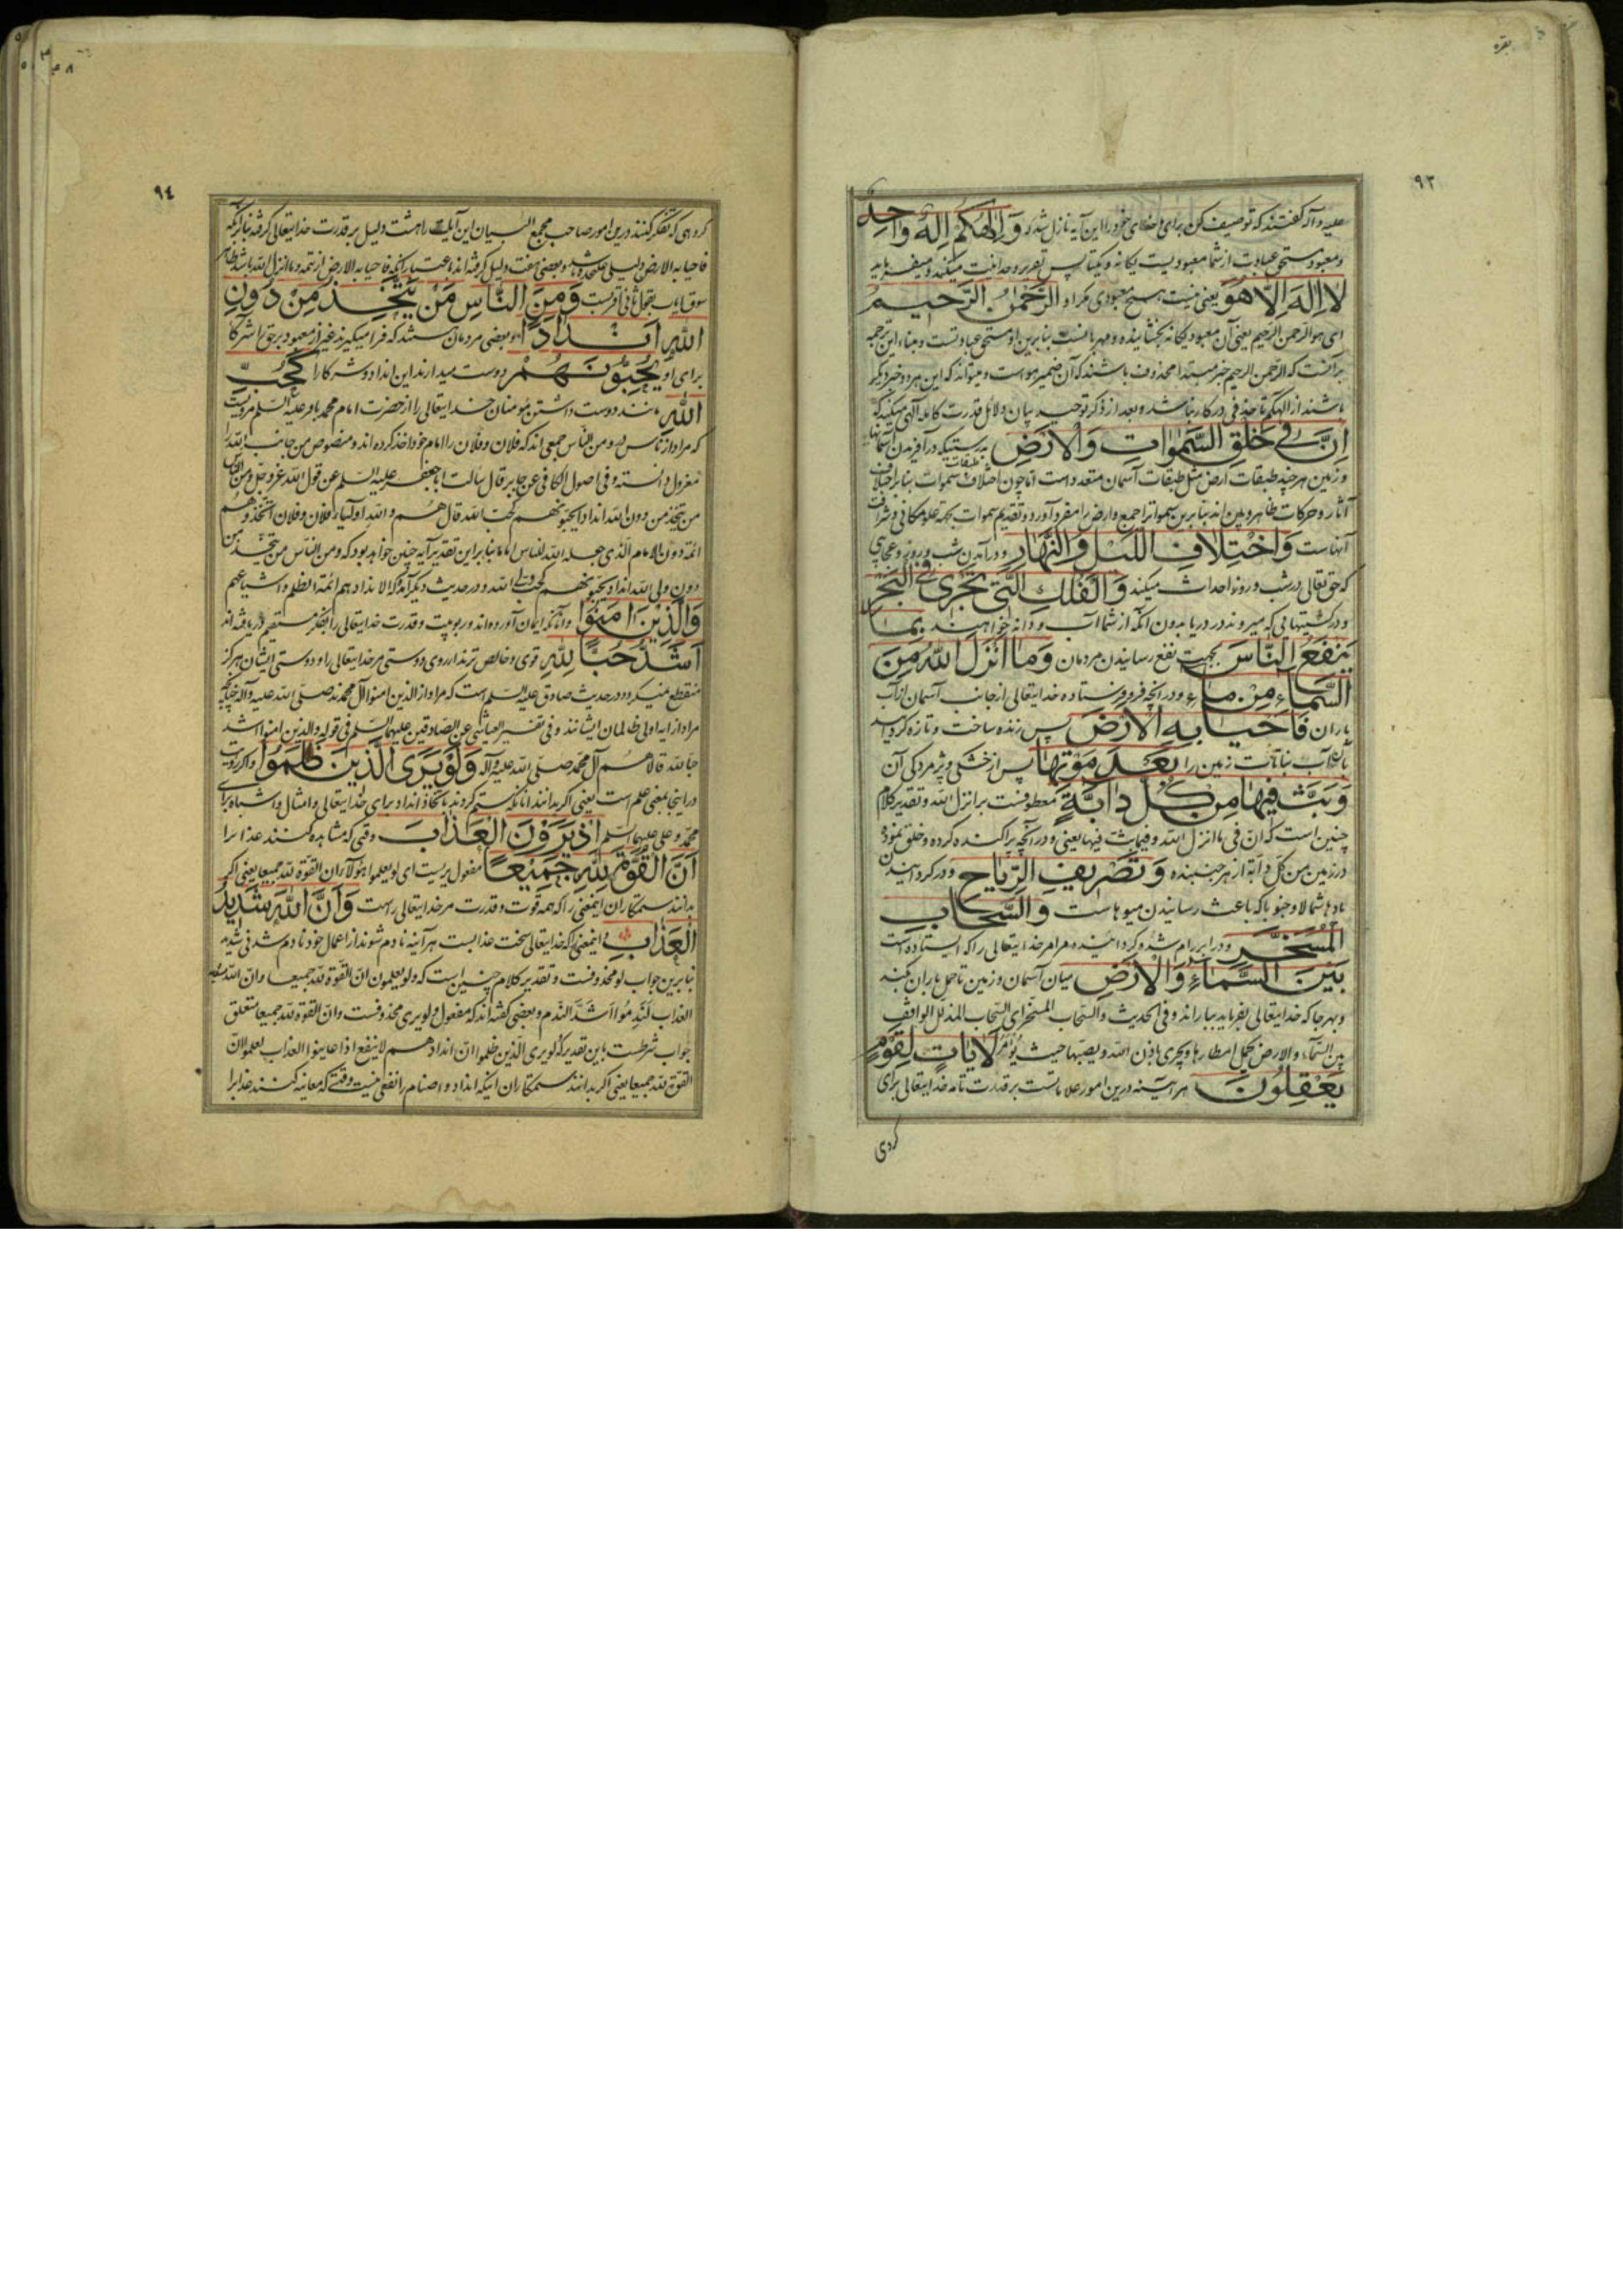 بقره
٩٣
علیه و آله گفتند که توصیف کن برای ما خدای خود را این آیه نازل شد که وَاِلٰهُكُم اِلٰهٌ وَاحِدٌ
و معبود مستحق عبادت از شما معبودیست یگانه و یکتا پس تقریر وحدانیت میکند و میفرماید
لَا اِلٰهَ اِلَّا هُوَ یعنی نیست هیچ معبودی مگر او الرَّحْمٰنُ الرَّحِیمُ
ای هو الرحمن الرحیم یعنی آن معبود یگانه بخشاینده و مهربانست بنابرین او مستحق عبادتست و بناء این ترجمه
برآنست که الرحمن الرحیم خبر مبتدا محذوف باشند که آن ضمیر هو است و میتواند که این هر دو خبر دیگر
باشند از الهکم تا حذفی در کار نباشد و بعد از ذکر توحید بیان دلائل قدرت کامله الهی میکند که
اِنَّ فِی خَلْقِ السَّمٰوَاتِ وَالْاَرْضِ بدرستیکه در آفریدن آسمانها
و زمین هر چند طبقات ارض مثل طبقات آسمان متعدد است اما چون اختلاف طبقات سموات بنابر اختلاف
آثار و حرکات ظاهر و بین اند بنابرین سموات را جمع و ارض را مفرد آورد و تقدیم سموات بجهة علو مکانی و شرافت
آنهاست وَاخْتِلَافِ اللَّیْلِ وَالنَّهَارِ و در آمدن شب و روز و عجایبی
که حق تعالی در شب و روز احداث میکند وَالْفُلْكِ الَّتِی تَجْرِی فِی الْبَحْرِ
و در کشتیهائی که میروند در دریا بدون آنکه از شما آب و دانه خواهند بِمَا
یَنْفَعُ النَّاسَ بجهت نفع رسانیدن مردمان وَمَا اَنْزَلَ اللّٰهُ مِنَ
السَّمَاءِ مِنْ مَاءٍ و در آنچه فرو فرستاده خدایتعالی از جانب آسمان از آب
باران فَاَحْیَا بِهِ الْاَرْضَ پس زنده ساخت و تازه گردانید
بآن آب نباتات زمین را بَعْدَ مَوْتِهَا پس از خشکی و پژمردگی آن
وَبَثَّ فِیهَا مِنْ كُلِّ دَابَّةٍ معطوفست بر انزل الله و تقدیر کلام
چنین است که ان فی ما انزل الله و فیما بث فیها یعنی و در آنچه پراکنده کرده و خلق نموده
در زمین من کل دابة از هر جنبنده وَتَصْرِیفِ الرِّیَاحِ و در گردانیدن
بادها شمالا و جنوبا که باعث رسانیدن میوهاست وَالسَّحَابِ
الْمُسَخَّرِ و در ابر رام شده گردانیده مر امر خدایتعالی را که ایستاده است
بَیْنَ السَّمَاءِ وَالْاَرْضِ میان آسمان و زمین تا حمل باران کند
و بهر جا که خدایتعالی بفرماید بباراند و فی الحدیث والسحاب المسخر ای السحاب المذلل الواقف
بین السماء والارض یحمل امطارها و یجری باذن الله و یصبها حیث یؤمر لَاٰیَاتٍ لِقَوْمٍ
یَعْقِلُونَ هر آینه درین امور علاماتست بر قدرت تامه خدایتعالی برای
گروهی
٩٤
گروهی که تفکر کنند درین امور صاحب مجمع البیان این آیت را هشت دلیل بر قدرت خدایتعالی گرفته بنابر آنکه
فاحیا به الارض دلیلی علیحده باشد و بعضی هفت دلیل گرفته اند باعتبار آنکه فاحیا به الارض از تتمه و ما انزل الله باشد ظاهر
سوق آیات بقول ثانی اقربست وَمِنَ النَّاسِ مَنْ یَتَّخِذُ مِنْ دُونِ
اللّٰهِ اَنْدَادًا و بعضی مردمان هستند که فرا میگیرند غیر از معبود برحق را شرکا
برای او یُحِبُّونَهُمْ دوست میدارند این انداد و شرکا را كَحُبِّ
اللّٰهِ مانند دوست داشتن مؤمنان خدایتعالی را از حضرت امام محمد باقر علیه السلم مرویست
که مراد از ناس در و من الناس جمعی اند که فلان و فلان را امام خود اخذ کرده اند و منصوص من جانب الله را
معزول دانسته و فی اصول الکافی عن جابر قال سالت اباجعفر علیه السلم عن قول الله عز و جل و من الناس
من یتخذ من دون الله اندادا یحبونهم کحب الله قال هم والله اولیاء فلان و فلان اتخذوهم
ائمة دون الامام الذی جعله الله للناس اماما بنابر این تقدیر آیه چنین خواهد بود که و من الناس من یتخذ من
دون ولی الله اندادا یحبونهم کحب ولی الله و در حدیث دیگر آمده که الانداد هم ائمة الظلم و اشیاعهم
وَالَّذِینَ اٰمَنُوا و آنانکه ایمان آورده اند و ربوبیت و قدرت خدایتعالی را بفکر مستقیم دریافته اند
اَشَدُّ حُبًّا لِلّٰهِ قوی و خالص ترند از روی دوستی مر خدایتعالی را و دوستی ایشان هرگز
منقطع نمیگردد در حدیث صادق علیه السلم است که مراد از الذین امنوا آل محمدند صلی الله علیه و آله چنانچه
مراد از آیه اولی ظالمان ایشانند و فی تفسیر العیاشی عن الصادقین علیهما السلم فی قوله والذین امنوا اشد
حبا لله قالا هم آل محمد صلی الله علیه و آله وَلَوْ یَرَی الَّذِینَ ظَلَمُوا و اگر رویت
در اینجا بمعنی علم است یعنی اگر بدانند آنانکه ستم کردند باتخاذ انداد برای خدایتعالی و امثال و اشباه برای
محمد و علی علیهما السلم اِذْ یَرَوْنَ الْعَذَابَ وقتی که مشاهده کنند عذاب را
اَنَّ الْقُوَّةَ لِلّٰهِ جَمِیعًا مفعول یریست ای لو یعلموا هؤلاء ان القوة لله جمیعا یعنی اگر
بدانند ستمکاران اینمعنی را که همه قوت و قدرت مر خدایتعالی راست وَاَنَّ اللّٰهَ شَدِیدُ
الْعَذَابِ و اینمعنی را که خدایتعالی سخت عذابست هر آینه نادم شوند از اعمال خود نادم شدنی شدید
بنابرین جواب لو محذوفست و تقدیر کلام چنین است که و لو یعلمون ان القوة لله جمیعا و ان الله شدید
العذاب لَنَدِمُوا اَشَدَّ النَّدَم و بعضی گفته اند که مفعول و لو یری محذوفست و ان القوة لله جمیعا متعلق
جواب شرطست باین تقدیر که لو یری الذین ظلموا ان اندادهم لا ینفع اذا عاینوا العذاب لعلموا ان
القوة لله جمیعا یعنی اگر بدانند ستمکاران اینکه انداد و اصنام را نفعی نیست وقتی که معاینه کنند عذاب را